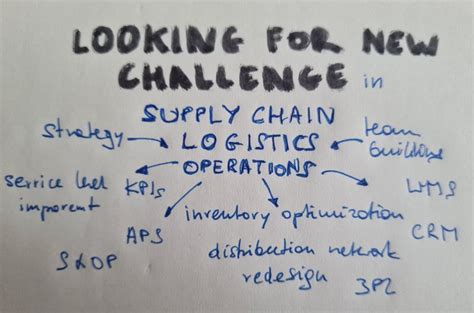 LOOKING FOR NEW
CHALLENGE in
SUPPLY CHAIN
strategy
LOGISTICS
team
OPERATIONS
service level
KPIs
WMS
inventory optimization
APS
CRM
S&OP
distribution network
redesign
3PL